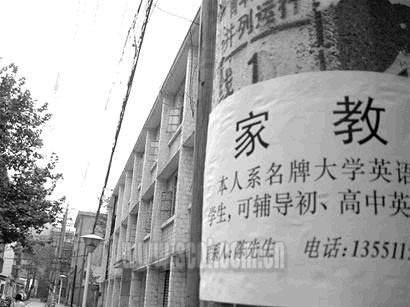 并列运行
线 1
家 教
本人系名牌大学英语
学生,可辅导初、高中英
系人:陈先生 电话:135511